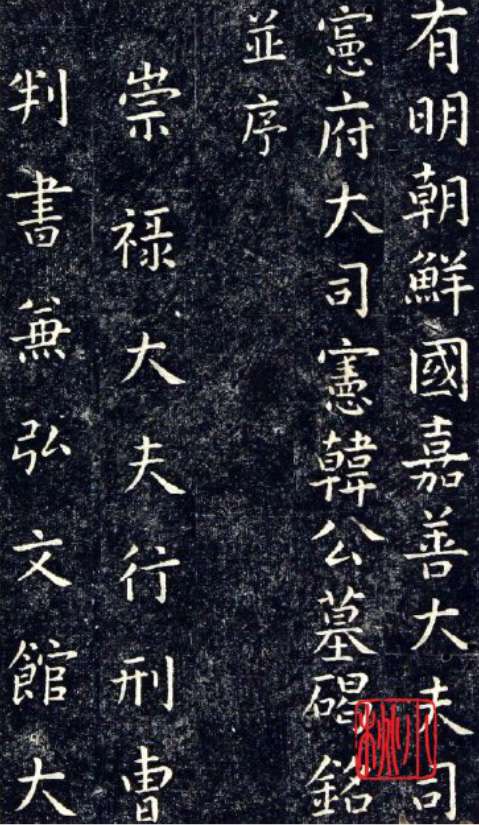 有明朝鮮國嘉善大夫司
憲府大司憲韓公墓碣銘
並序
崇祿大夫行刑曺
判書兼弘文館大